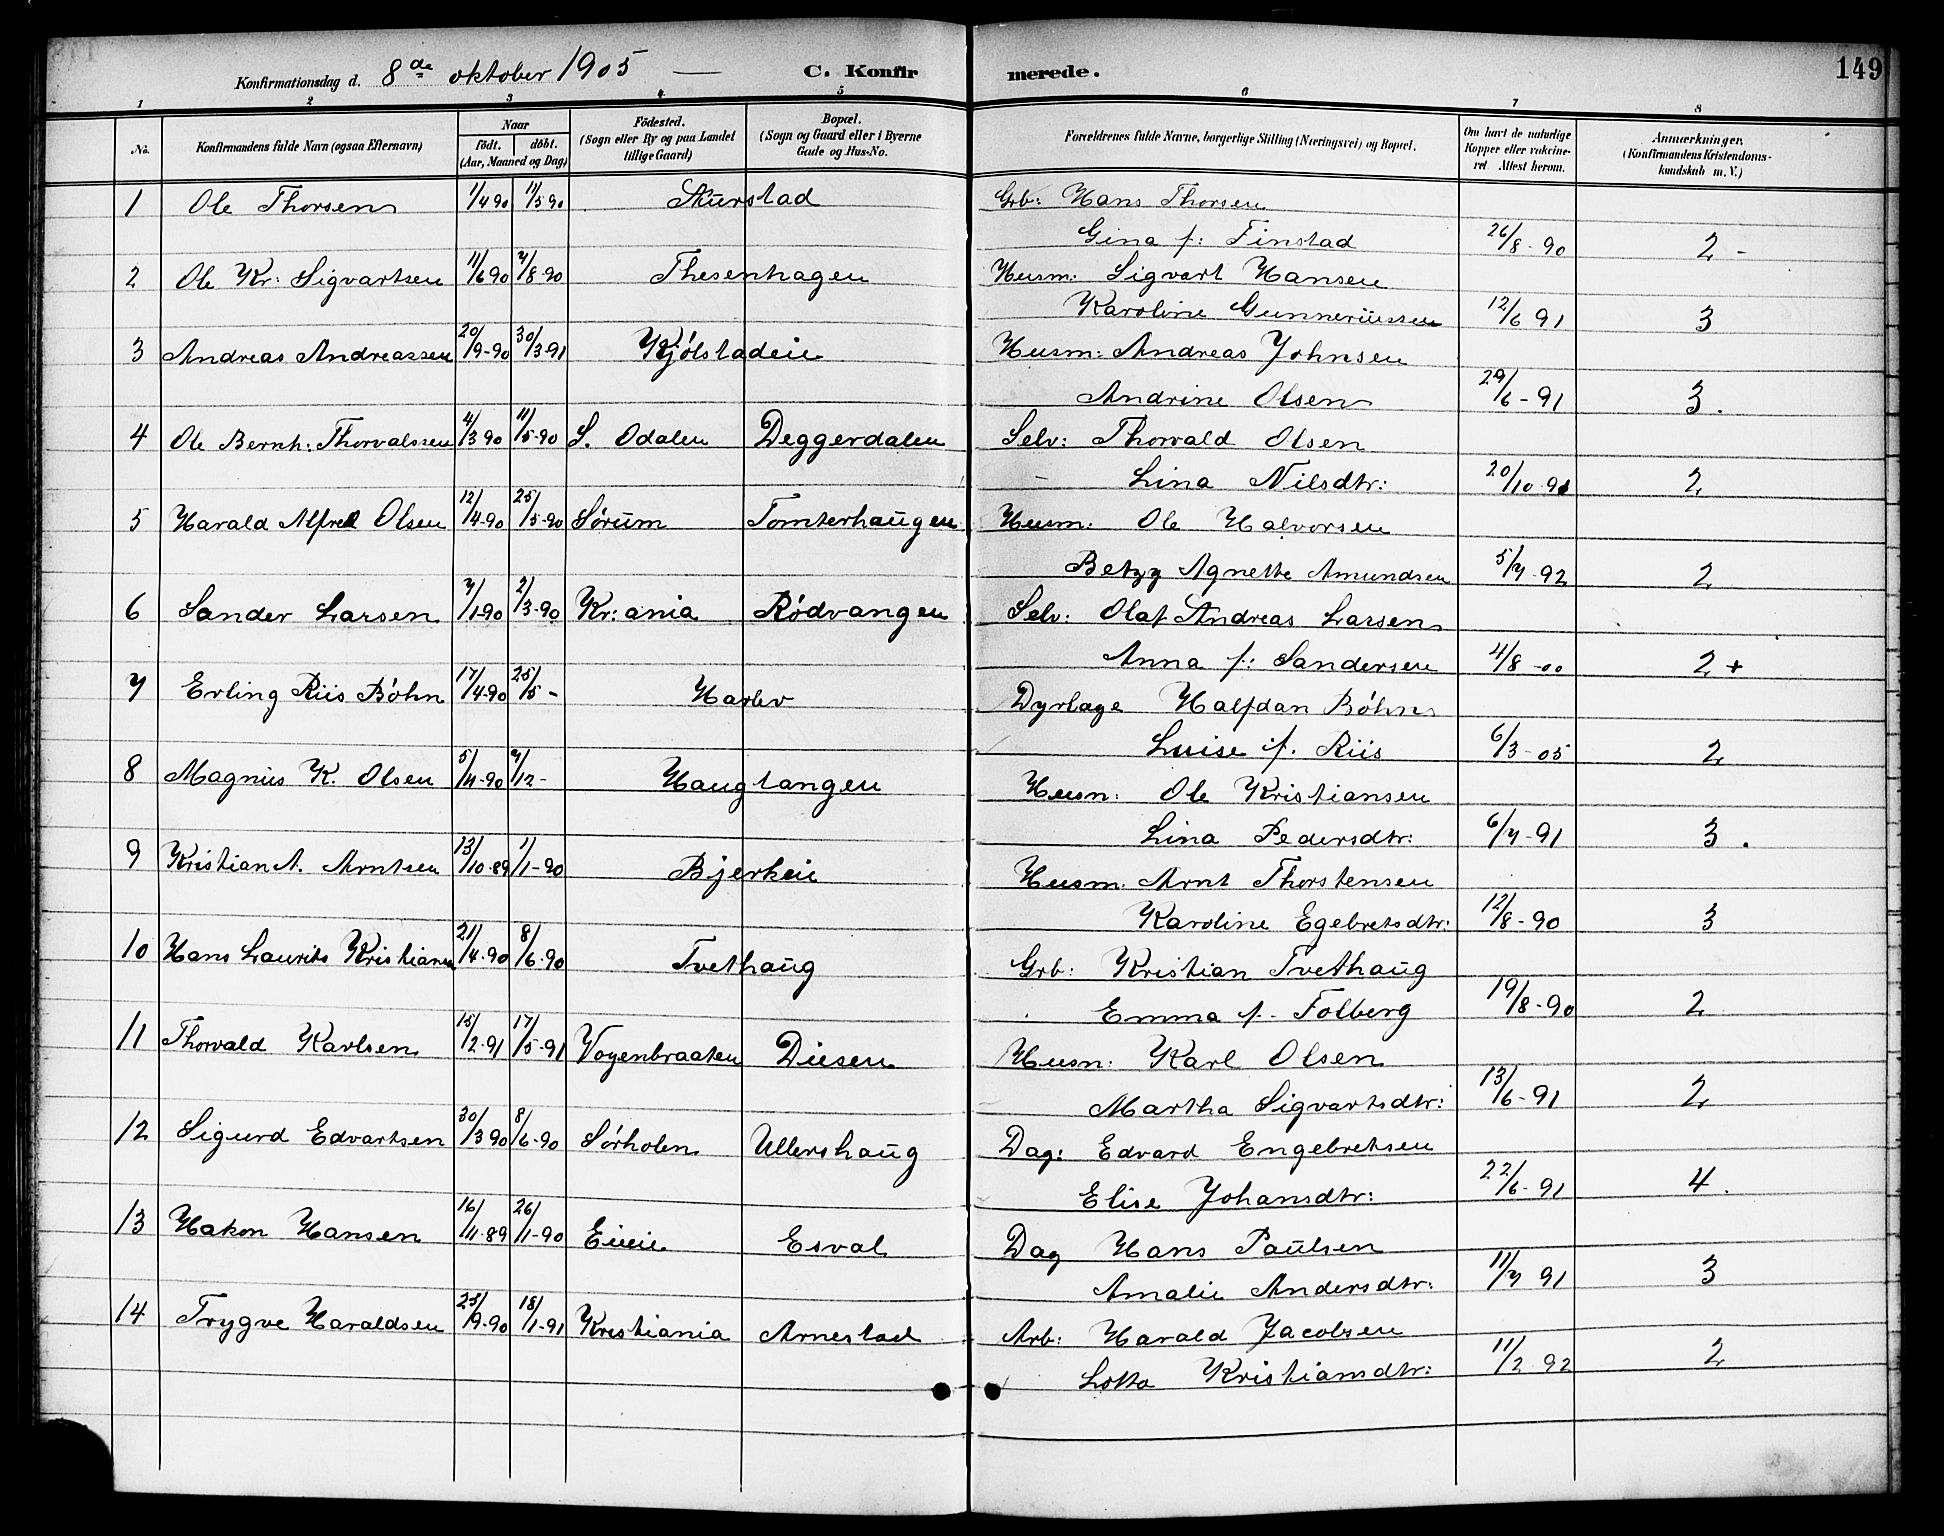 149
Konfirmationsdag d. 8de oktober 1905 — C. Konfirmerede.
1 2 3 4 5 6 7 8
No. Konfirmandens fulde Navn (ogsaa Efternavn) Naar födt. döbt. (Aar, Maaned og Dag) Födested. (Sogn eller By og paa Landet tillige Gaard) Bopæl. (Sogn og Gaard eller i Byerne Gade og Hus-No. Forældrenes fulde Navne, borgerlige Stilling (Næringsvei) og Bopæl. Om havt de naturlige Kopper eller vakcineret Attest herom. Anmærkninger. (Konfirmandens Kristendomskundskab m. V.)
1 Ole Thorsen 1/4 90 11/5 90 Skurstad Grb: Hans Thorsen
Gina f: Finstad 26/8-90 2 -
2 Ole Kr: Sigvartsen 11/6 90 7/8-90 Thesenhagen Husm: Sigvart Hansen
Karoline Gunneriussen 12/6 91 3
3 Andreas Andreassen 20/9-90 30/3-91 Kjølstadeie Husm: Andreas Johnsen
Andrine Olsen 29/6-91 3.
4 Ole Bernh: Thorvalssen 4/3 90 11/5-90 S. Odalen Deggerdalen Selv: Thorvald Olsen
Lina Nilsdtr: 20/10-91 2
5 Harald Alfred Olsen 12/4-90 25/5-90 Sørum Tomterhaugen Husm: Ole Halvorsen
Betzy Agnette Amundsen 5/7-92 2
6 Sander Larsen 7/1-90 2/3-90 Kr:ania Rødvangen Selv: Olaf Andreas Larsen
Anna f: Sandersen 4/8-00 2+
7 Erling Riis Bøhn 17/4-90 25/5- Harlev Dyrlæge Halfdan Bøhn
Luise f. Riis 6/3-05 2
8 Magnus K. Olsen 5/11-90 7/12- Haugtangen Husm: Ole Kristiansen
Lina Pedersdtr: 6/7-91 3.
9 Kristian A. Arntsen 13/10-89 1/1-90 Bjerkeie Husm. Arnt Thorstensen
Karoline Egebretsdtr: 12/8-90 3
10 Hans Laurits Kristiansen 21/4-90 8/6-90 Tvethaug Grb: Kristian Tvethaug
Emma f. Folberg 19/8-90 2
11 Thorvald Karlsen 15/2-91 17/5-91 Voyenbraaten Diesen Husm: Karl Olsen
Martha Sigvartsdtr: 13/6-91 2
12 Sigurd Edvartsen 30/3 90 8/6-90 Sørholen Ullershaug Dag: Edvard Engebretsen
Elise Johansdtr: 22/6-91 4.
13 Hakon Hansen 16/11-89 26/1-90 Eieie Esval Dag Hans Paulsen
Amalie Andersdtr: 11/7 91 3
14 Trygve Haraldsen 25/9-90 18/1-91 Kristiania Arnestad Arb: Harald Jacobsen
Lotta Kristiansdtr: 11/2-92 2